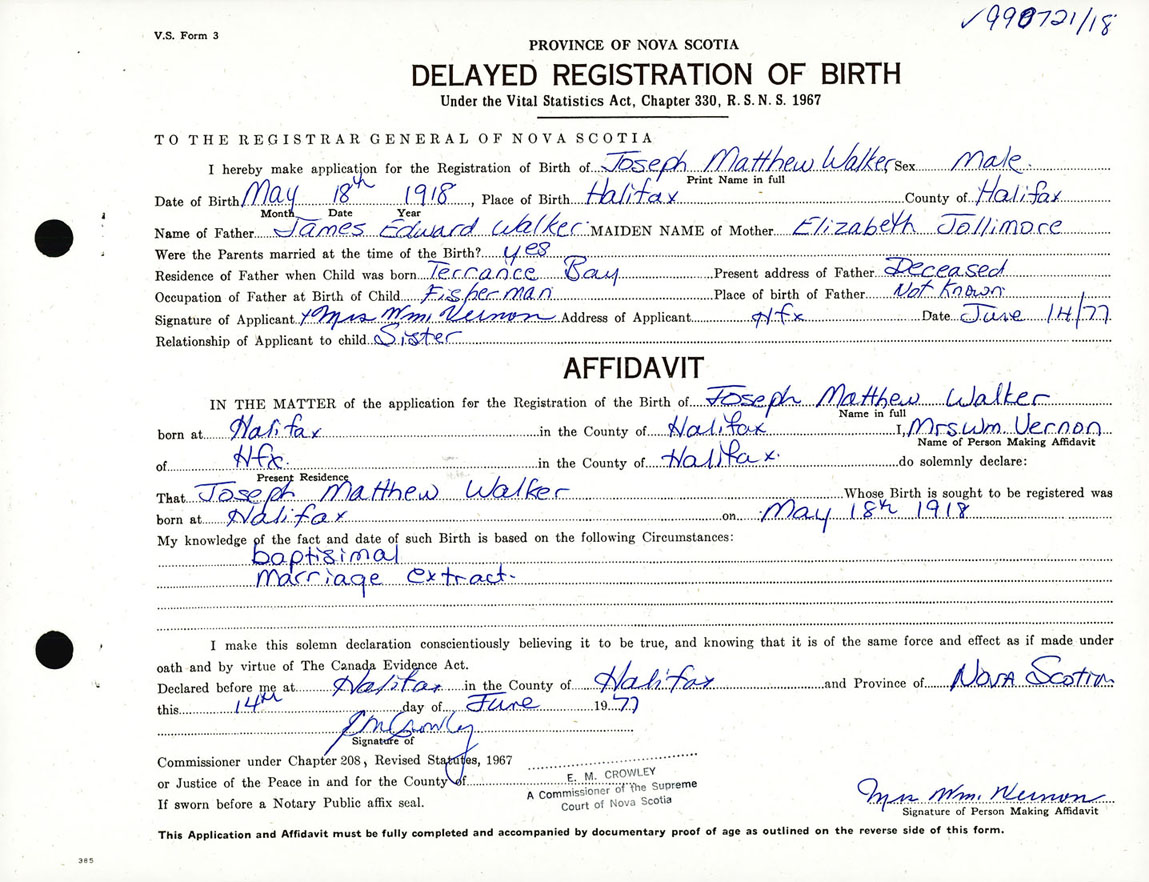 V.S. Form 3
✓990721/18
PROVINCE OF NOVA SCOTIA
DELAYED REGISTRATION OF BIRTH
Under the Vital Statistics Act, Chapter 330, R.S.N.S. 1967
TO THE REGISTRAR GENERAL OF NOVA SCOTIA
I hereby make application for the Registration of Birth of Joseph Matthew Walker Sex Male.
Print Name in full
Date of Birth May 18th 1918, Place of Birth Halifax County of Halifax
Month Date Year
Name of Father James Edward Walker MAIDEN NAME of Mother Elizabeth Jollimore
Were the Parents married at the time of the Birth? yes
Residence of Father when Child was born Terrance Bay Present address of Father Deceased
Occupation of Father at Birth of Child Fisherman Place of birth of Father Not Known
Signature of Applicant Mrs Wm. Vernon Address of Applicant Hfx Date June 14/77
Relationship of Applicant to child Sister
AFFIDAVIT
IN THE MATTER of the application for the Registration of the Birth of Joseph Matthew Walker
Name in full
born at Halifax in the County of Halifax I, Mrs Wm. Vernon
Name of Person Making Affidavit
of Hfx. in the County of Halifax. do solemnly declare:
Present Residence
That Joseph Matthew Walker Whose Birth is sought to be registered was
born at Halifax on May 18th 1918
My knowledge of the fact and date of such Birth is based on the following Circumstances:
baptisimal
marriage extract.
I make this solemn declaration conscientiously believing it to be true, and knowing that it is of the same force and effect as if made under
oath and by virtue of The Canada Evidence Act.
Declared before me at Halifax in the County of Halifax and Province of Nova Scotia
this 14th day of June 1977
EM Crowley
Signature of
Commissioner under Chapter 208, Revised Statutes, 1967
or Justice of the Peace in and for the County of
If sworn before a Notary Public affix seal.
E. M. CROWLEY
A Commissioner of the Supreme
Court of Nova Scotia
Mrs Wm. Vernon
Signature of Person Making Affidavit
This Application and Affidavit must be fully completed and accompanied by documentary proof of age as outlined on the reverse side of this form.
385